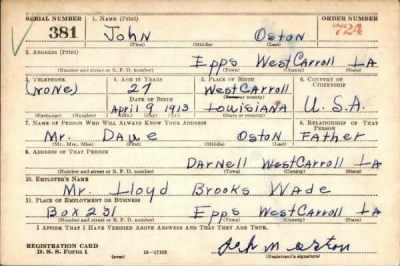 SERIAL NUMBER 1. NAME (Print) ORDER NUMBER
381 John Oston 724
(First) (Middle) (Last)
2. ADDRESS (Print)
Epps West Carroll LA
(Number and street or R. F. D. number) (Town) (County) (State)
3. TELEPHONE 4. AGE IN YEARS 5. PLACE OF BIRTH 6. COUNTRY OF CITIZENSHIP
(none) 27 West Carroll
DATE OF BIRTH (Town or county)
April 9 1913 Louisiana U.S.A.
(Exchange) (Number) (Mo.) (Day) (Yr.) (State or country)
7. NAME OF PERSON WHO WILL ALWAYS KNOW YOUR ADDRESS 8. RELATIONSHIP OF THAT PERSON
Mr. Dave Oston Father
(Mr., Mrs., Miss) (First) (Middle) (Last)
9. ADDRESS OF THAT PERSON
Darnell West Carroll LA
(Number and street or R. F. D. number) (Town) (County) (State)
10. EMPLOYER'S NAME
Mr. Lloyd Brooks Wade
11. PLACE OF EMPLOYMENT OR BUSINESS
Box 231 Epps West Carroll LA
(Number and street or R. F. D. number) (Town) (County) (State)
I AFFIRM THAT I HAVE VERIFIED ABOVE ANSWERS AND THAT THEY ARE TRUE.
REGISTRATION CARD
D. S. S. Form 1 (over) (Registrant's signature)